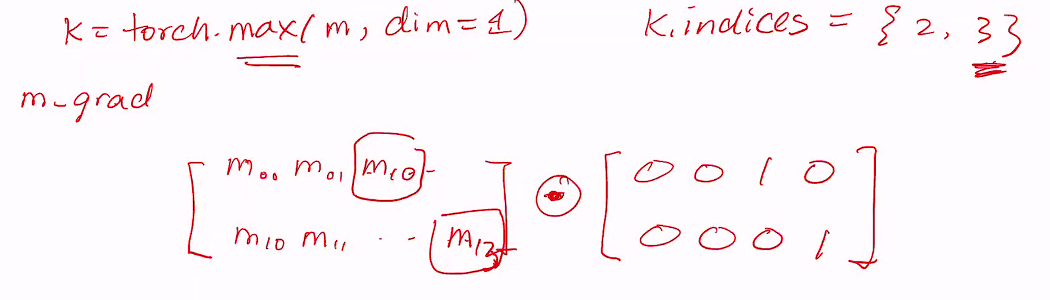 k = torch.max( m, dim=1) k.indices = { 2, 3}
m_grad
[ m00 m01 m10 - ] ⊙ [ 0 0 1 0 ]
[ m10 m11 . . - m13 ] [ 0 0 0 1 ]